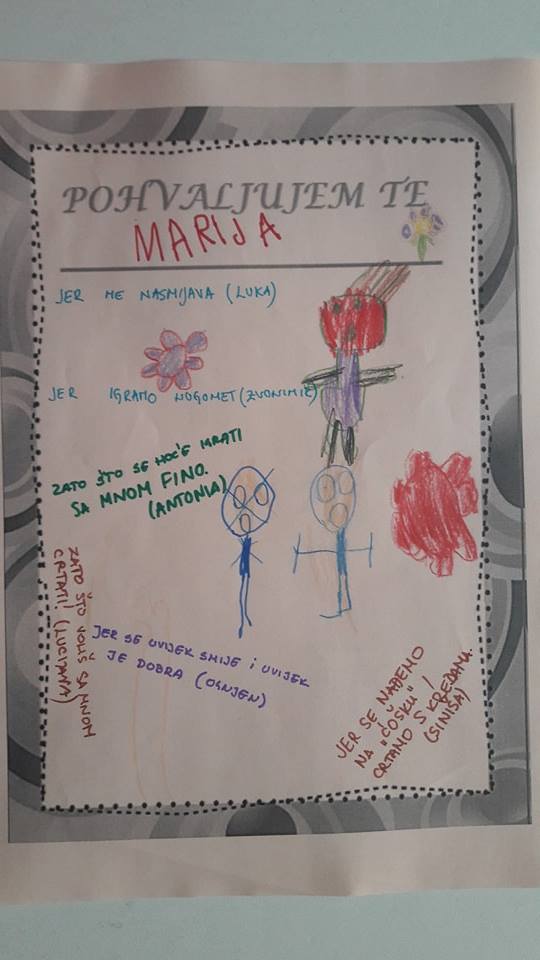 POHVALJUJEM TE
MARIJA
JER ME NASMIJAVA (LUKA)
JER IGRAMO NOGOMET (ZVONIMIR)
ZATO ŠTO SE HOĆE IGRATI
SA MNOM FINO.
(ANTONIA)
ZATO ŠTO VOLIŠ SA MNOM
CRTATI! (LUCIJANA)
JER SE UVIJEK SMIJE I UVIJEK
JE DOBRA (OGNJEN)
JER SE NAĐEMO
NA "ĆOŠKU" I
CRTAMO S KREDAMA.
(SINIŠA)